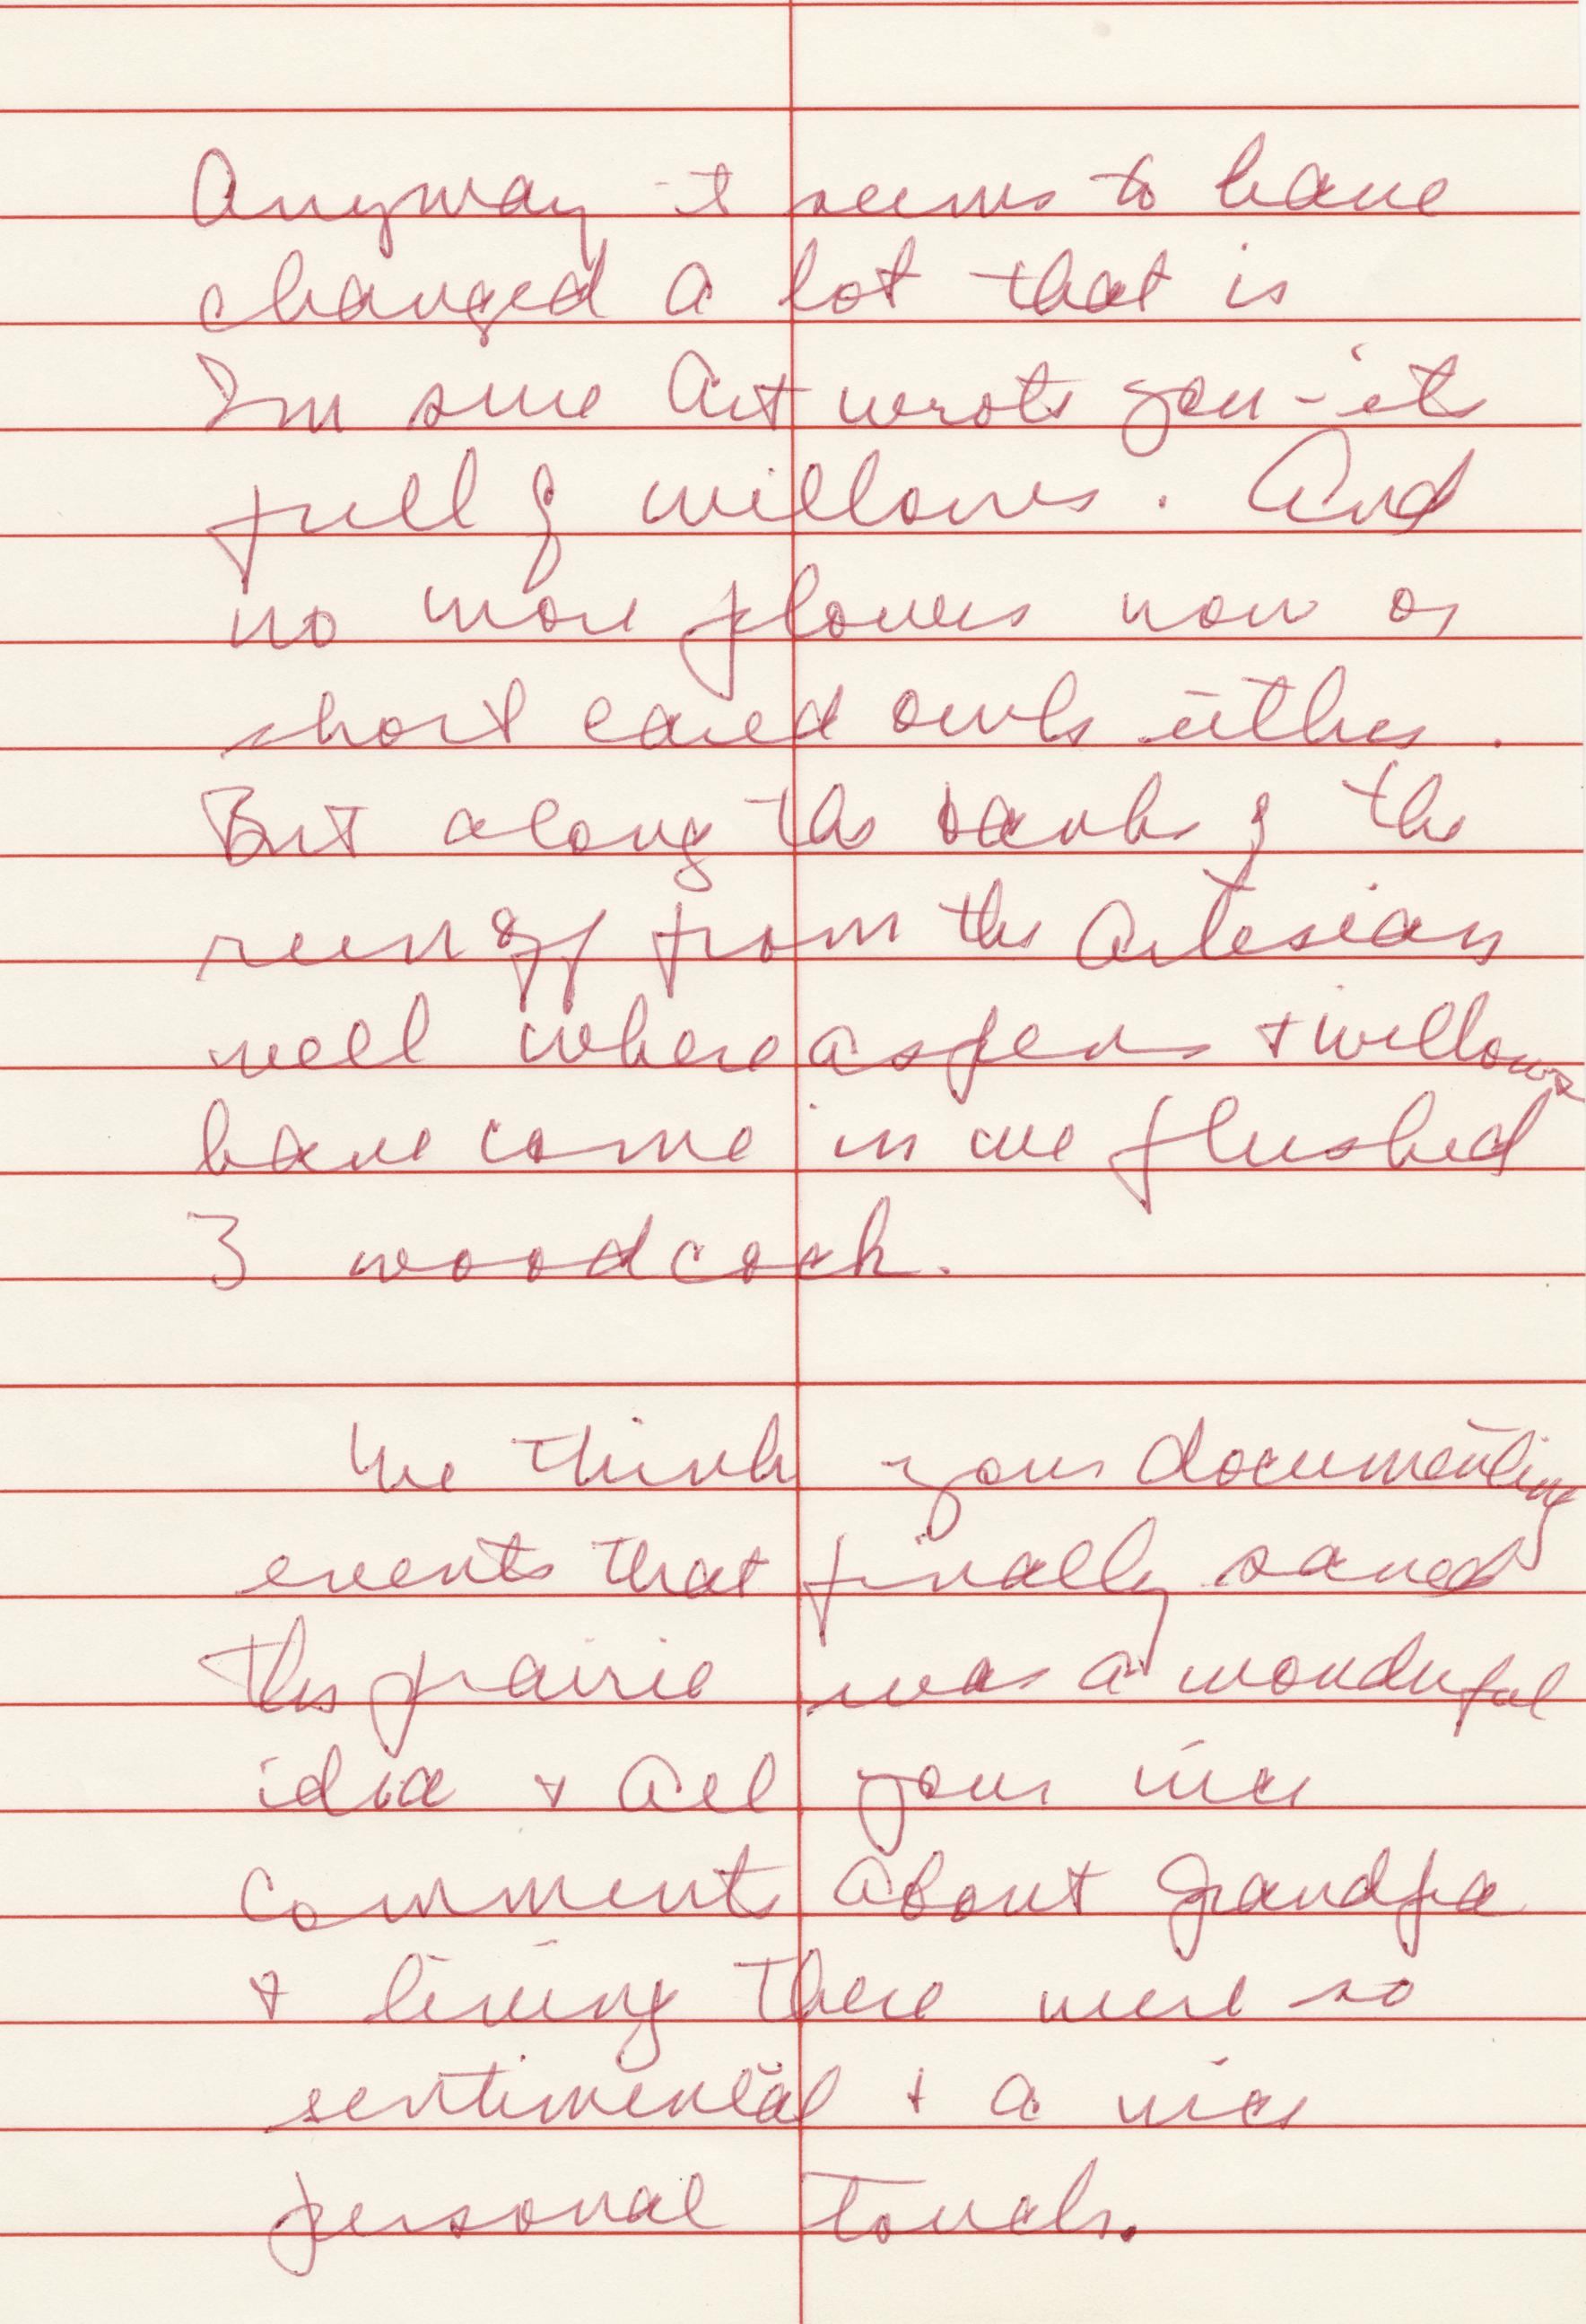 Anyway it seems to have
changed a lot that is
Im sure Art wrote you - its
full of willows. And
no more plovers now or
short eared owls either.
But along the bank of the
run off from the Artesian
well where aspens + willows
have come in we flushed
3 woodcock.
We think your documenting
events that finally saved
this prairie was a wonderful
idea + all your nice
comments about Grandpa
+ living there were so
sentimental + a nice
personal touch.